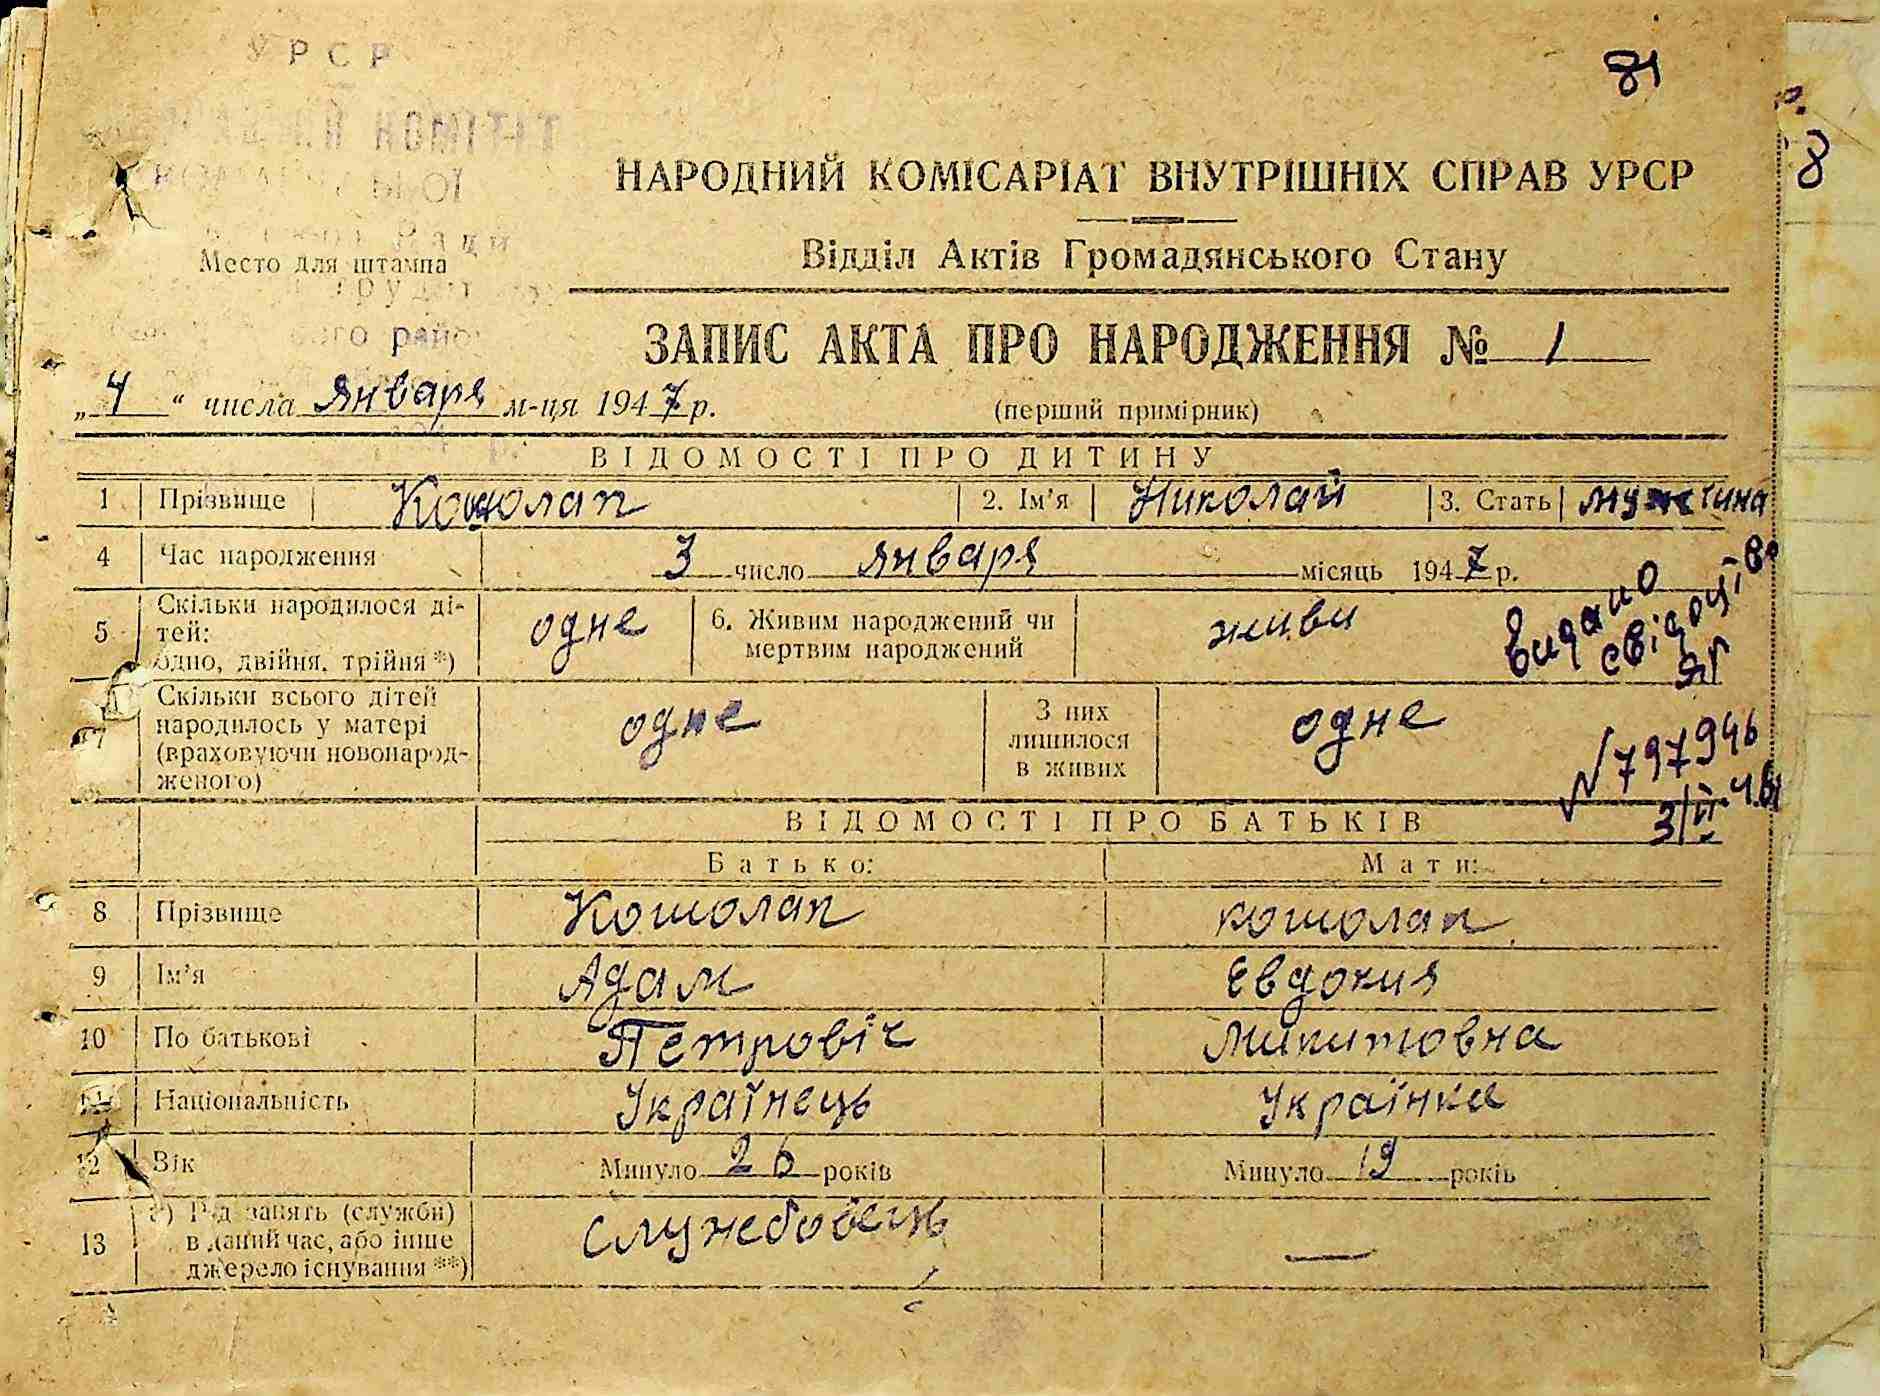 УРСР
81
8
НАРОДНИЙ КОМІСАРІАТ ВНУТРІШНІХ СПРАВ УРСР
Відділ Актів Громадянського Стану
Место для штампа
ЗАПИС АКТА ПРО НАРОДЖЕННЯ № 1
„4“ числа января м-ця 1947 р.
(перший примірник)
ВІДОМОСТІ ПРО ДИТИНУ
1 Прізвище Кошолап 2. Ім'я Николай 3. Стать мужчина
4 Час народження 3 число января місяць 1947 р.
5 Скільки народилося ді-
тей:
одно, двійня, трійня *) одне 6. Живим народжений чи
мертвим народжений живи
Видано
свідоцтво
ЯГ
№ 797946
7 Скільки всього дітей
народилось у матері
(враховуючи новонарод-
женого) одне З них
лишилося
в живих одне
ВІДОМОСТІ ПРО БАТЬКІВ
Батько: Мати:
8 Прізвище Кошолап кошолап
9 Ім'я Адам Евдокия
10 По батькові Петровіч Микитовна
11 Національність Українець Українка
12 Вік Минуло 26 років Минуло 19 років
13 а) Рід занять (служби)
в даний час, або інше
джерело існування **) службовець —